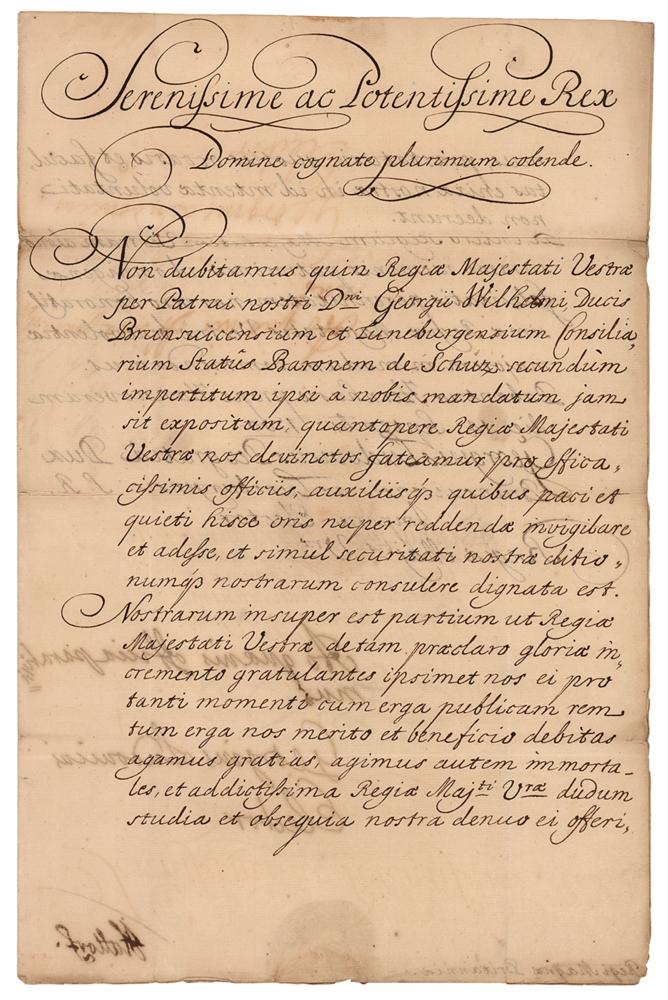 Serenissime ac Potentissime Rex
Domine cognate plurimum colende.
Non dubitamus quin Regiæ Majestati Vestræ
per Patrui nostri Dni Georgii Wilhelmi, Ducis
Brunsuicensium et Luneburgensium Consilia,
rium Statûs Baronem de Schutz secundùm
impertitum ipsi à nobis mandatum jam
sit expositum, quantopere Regiæ Majestati
Vestræ nos devinctos fateamur pro effica,
cissimis officiis, auxiliisq; quibus paci et
quieti hisce oris nuper reddendæ invigilare
et adesse, et simùl securitati nostræ ditio,
numq; nostrarum consulere dignata est.
Nostrarum insuper est partium ut Regiæ
Majestati Vestræ de tam præclaro gloriæ in,
cremento gratulantes ipsimet nos ei pro
tanti momenti cum erga publicam rem
tum erga nos merito et beneficio debitas
agamus gratias, agimus autem immorta-
les, et addictissima Regiæ Majti Vræ dudum
studia et obsequia nostra denuo ei offeri,